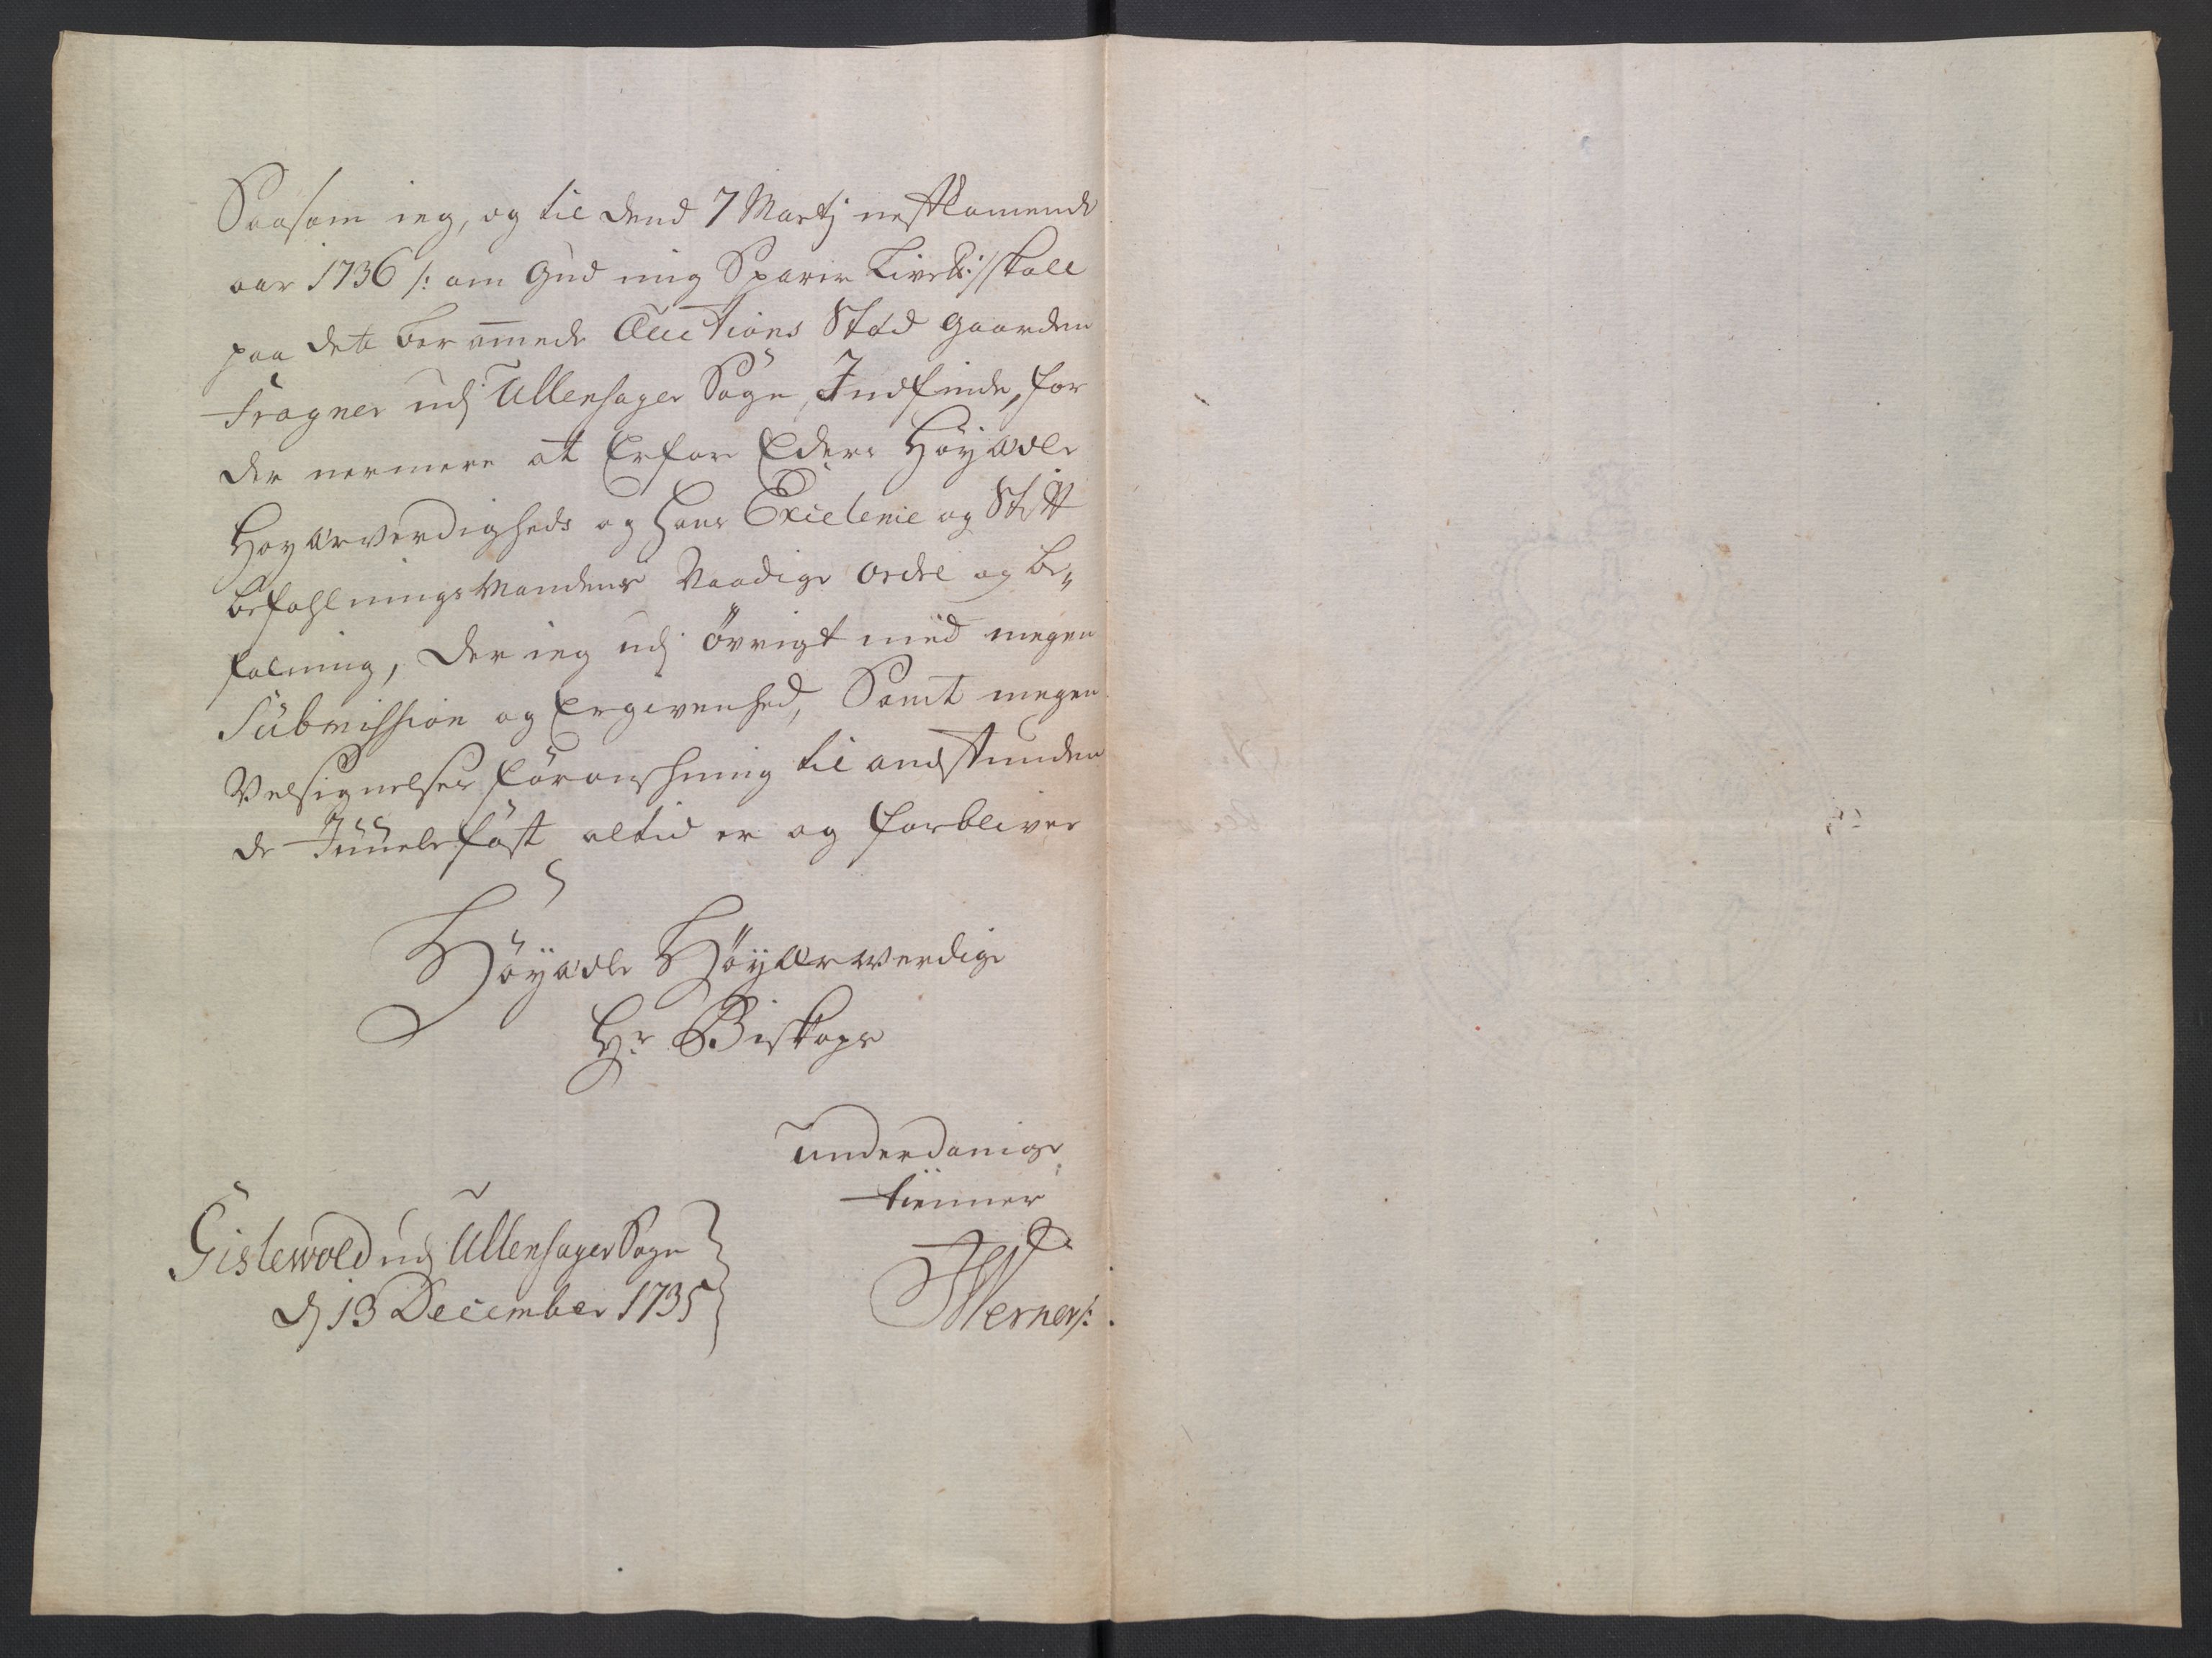 Saasom ieg, og til dend 7 Martj nestkomende
aar 1736 /: om Gud mig Sparer Livet :/ skall
paa dete beramede Auctions Stæd gaarden
Frogner udj Ullensager Sogn, Indfinde, for
der nermere at Erfare Eders Høyædle
Høyærværdigheds og hans Excelence og Stift
befahlningsMandens Naadige Ordre og be„
falning, der ieg udj øvrigt med megen
Submission og Ergivenhed, Samt megen
Velsignelses forønschning til andstunden
de Juule fæst altid er og forbliver
Høyædle Høyærwerdige
Hr Biskops
underdanige
tienner
JWerner/:
Gislewold udj Ullensager Sogn
dj 13 December 1735